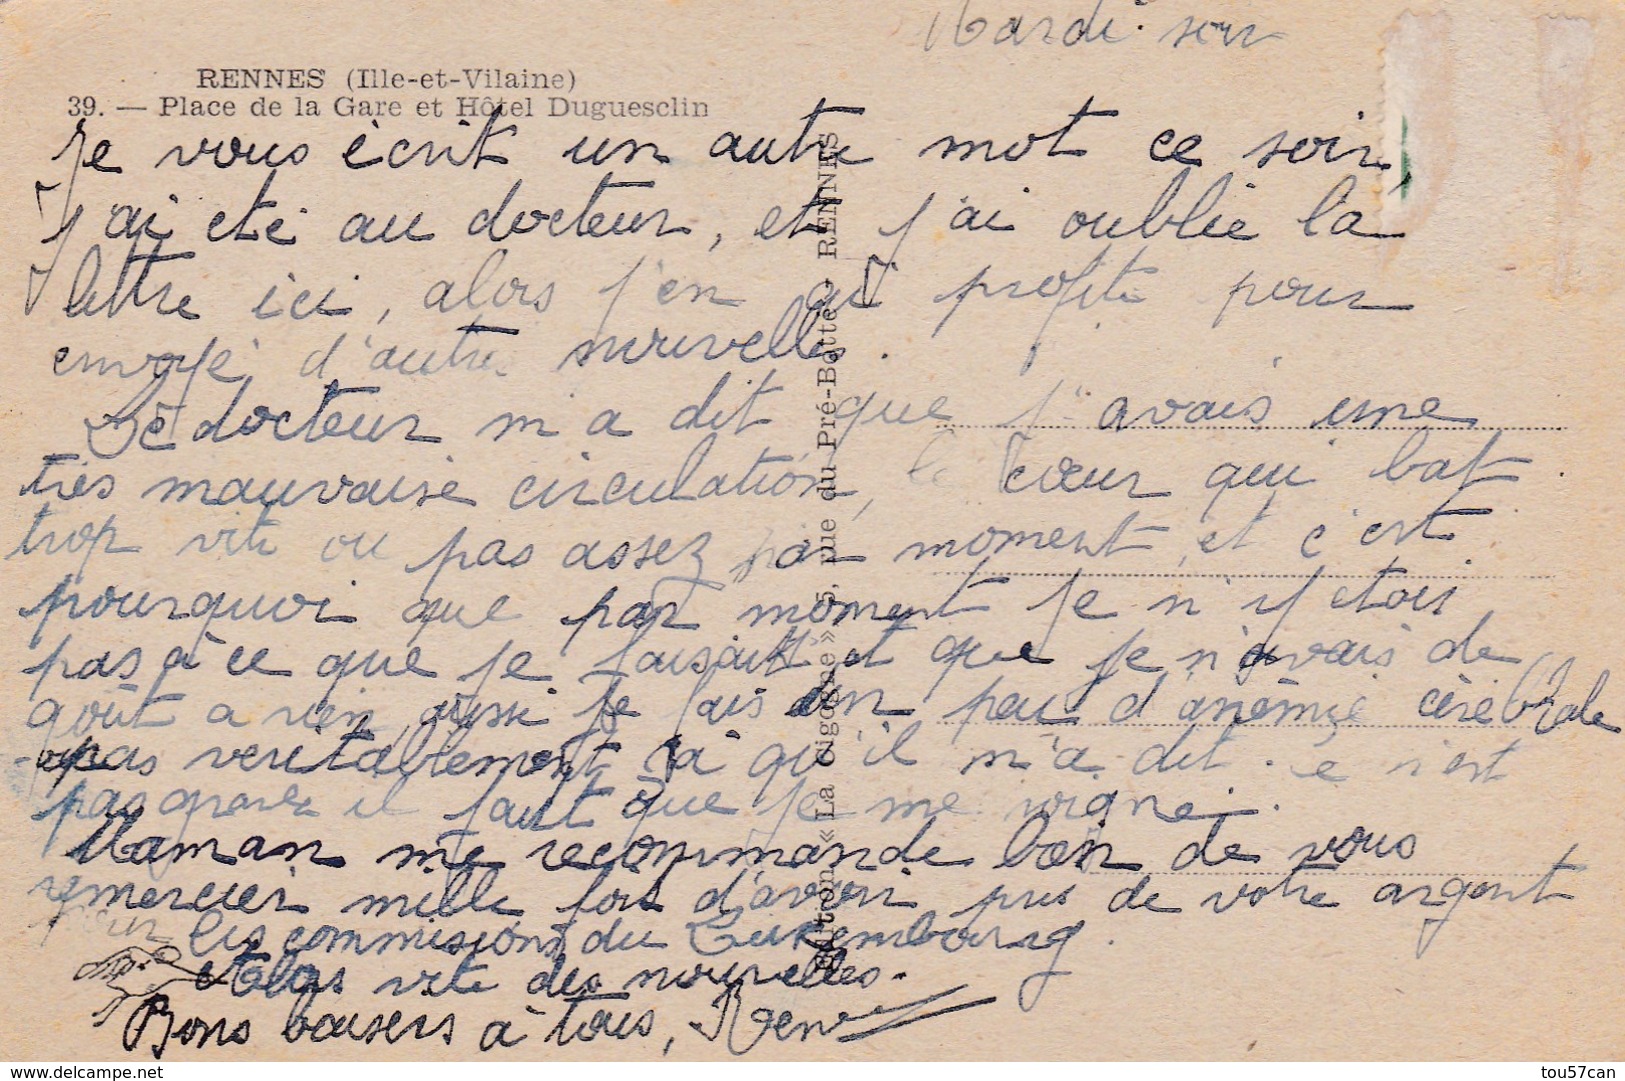 Mardi soir
RENNES (Ille-et-Vilaine)
39. — Place de la Gare et Hôtel Duguesclin
Je vous écrit un autre mot ce soir,
j'ai eté au docteur, et j'ai oublié la
lettre ici, alors j'en ai profité pour
envoyé d'autre nouvelles.
Le docteur m'a dit que j'avais une
très mauvaise circulation, le cœur qui bat
trop vite ou pas assez par moment, et c'est
pourquoi que par moment je n'y etais
pas à ce que je faisait et que je n'avais de
goût a rien, aussi je fais un peu d'anémie cérébrale
pas veritablement à qu'il m'a dit. Ce n'est
pas grave il faut que je me soigne.
Maman me recommande bien de vous
remercier mille fois d'avoir pris de votre argent
pour les commissions du Luxembourg.
et plus vite des nouvelles.
Bons baisers à tous, René
Edition «La Cigogne» 5, rue du Pré-Botté - RENNES
delcampe.net
tou57can